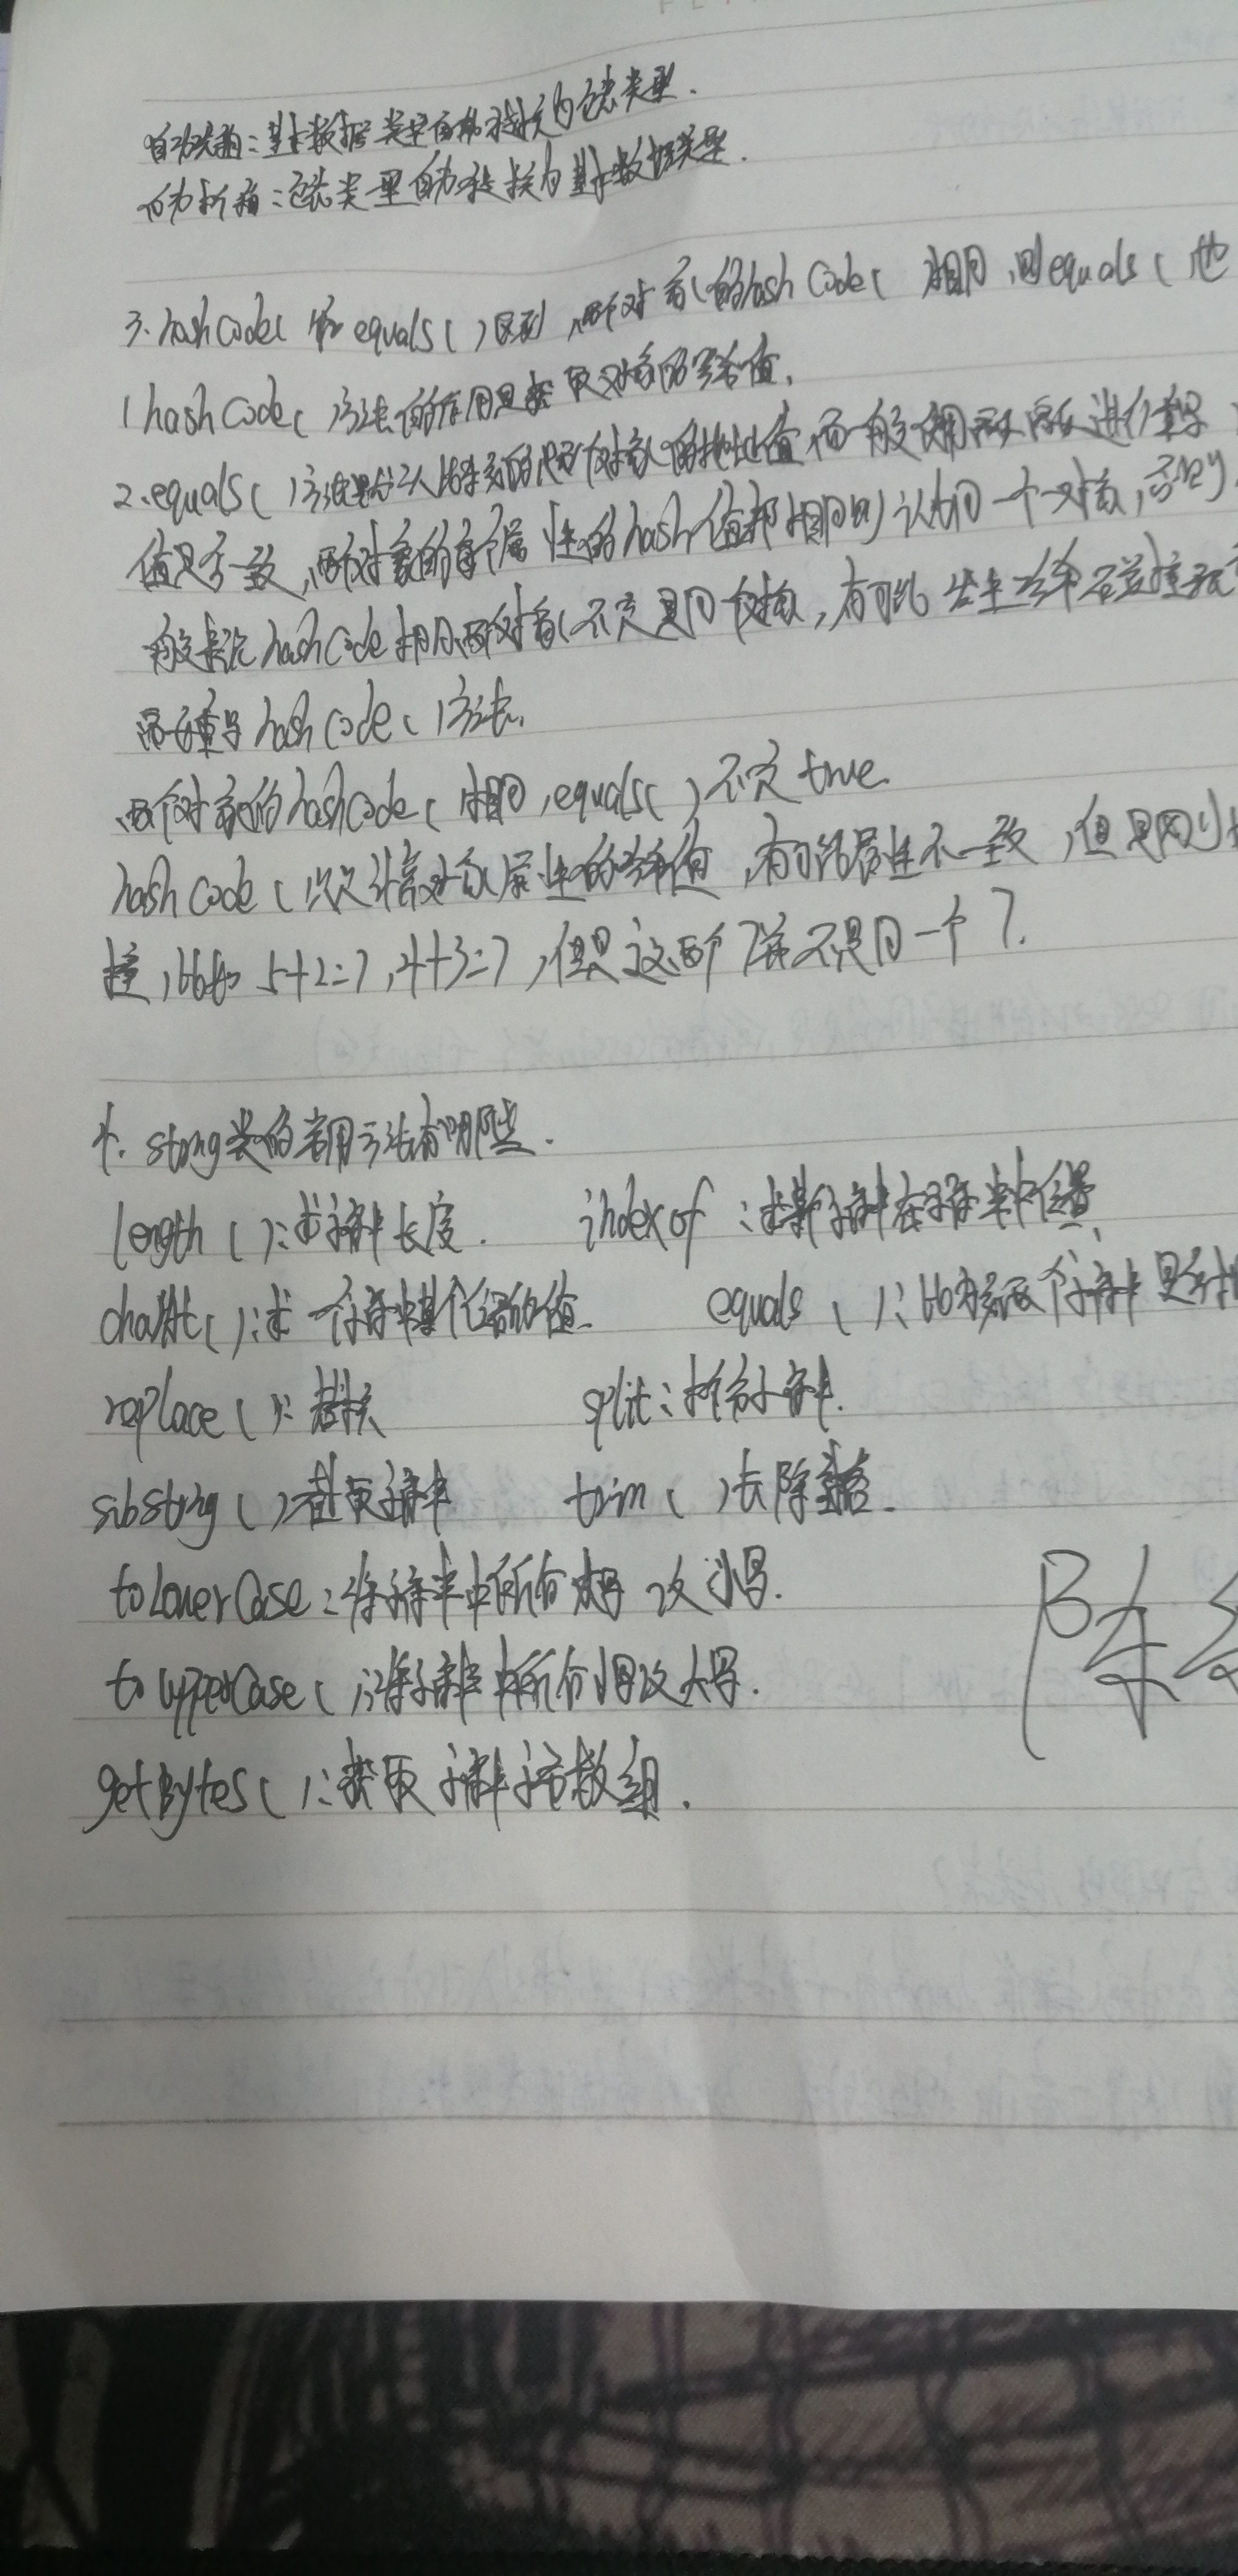 自动装箱：基本数据类型自动转换为包装类型．
自动拆箱：包装类型自动转换为基本数据类型．
3. hashCode( 和 equals( )区别，两个对象的hashCode( )相同，则equals( 也
1 hashCode( )方法的作用是获取对象的哈希值．
2. equals( )方法默认比较的是对象的地址值，而一般使用需要进行重写
值是否一致，两个对象的每个属性的hash值都相同则认为同一个对象，否则
一般来说hashCode相同两个对象不一定是同一个对象，有可能发生哈希碰撞
需要重写hashCode( )方法．
两个对象的hashCode( )相同，equals( )不一定true
hashCode( )只计算对象属性的哈希值，有可能属性不一致，但是
撞，比如 5+2=7，4+3=7，但是这两个7并不是同一个7．
4. string类的常用方法有哪些．
length( )：求字符串长度． indexof：求某个字符串在字符串中位置
charAt( )：求一个字符串某个位置的值． equals( )：比较两个字符串是否
replace( )：替换 split：拆分字符串．
substring( )截取字符串 trim( )去除空格．
toLowerCase：将字符串中所有大写改小写．
toUpperCase( )：将字符串中所有小写改大写．
getBytes( )：获取字符串字节数组．
陈